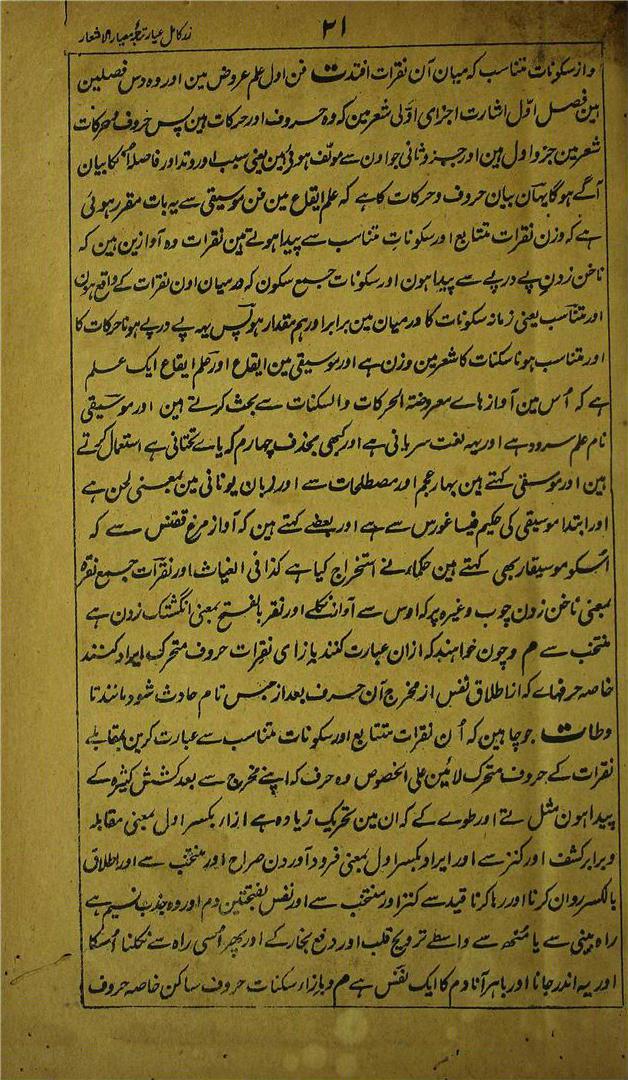 زر کامل عیار ترجمۂ معیار الاشعار
۲۱
و از سکونات متناسب کہ میان آن نقرات افتدت فن اول علم عروض مین اور وہ دس فصلین
ہین فصل اوّل اشارت اجزای اوّلی شعر مین کہ وہ حروف اور حرکات ہین پس حروف و حرکات
شعر مین جزو اول ہین اور جزو ثانی جو اون سے مولف ہوئی ہین یعنی سبب اور وتد اور فاصلہ اُسکا بیان
آگے ہوگا یہان بیان حروف و حرکات کا ہے کہ علم ایقاع مین فن موسیقی سے یہ بات مقرر ہوئی
ہے کہ وزن نقرات متتابع اور سکونات متناسب سے پیدا ہوتے ہین نقرات وہ آوازین ہین کہ
ناخن زدن پے در پے سے پیدا ہون اور سکونات جمع سکون کہ درمیان اون نقرات کے واقع ہون
اور متناسب یعنی زمانہ سکونات کا درمیان مین برابر اور ہم مقدار ہو پس یہہ پے درپے ہونا حرکات کا
اور متناسب ہونا سکنات کا شعر مین وزن ہے اور موسیقی مین ایقاع اور علم ایقاع ایک علم
ہے کہ اُس مین آواز ہاے معروضتہ الحرکات و السکنات سے بحث کرتے ہین اور موسیقی
نام علم سرود ہے اور یہہ لغت سریانی ہے اور کبھی بحذف چہارم کہ یاے تحتانی ہے استعمال کرتے
ہین اور موسقی کہتے ہین بہار عجم اور مصطلحات سے اور زبان یونانی مین بمعنی لحن ہے
اور ابتدا موسیقی کی حکیم فیساغورس سے ہے اور بعضے کہتے ہین کہ آواز مرغ ققنس سے کہ
اُسکو موسیقار بھی کہتے ہین حکماء نے استخراج کیا ہے کذا فی الغیاث اور نقرات جمع نقرہ
بمعنی ناخن زدن چوب وغیرہ پر کہ اوس سے آواز نکلے اور نقر بالفتح بمعنی انگشتک زدن ہے
منتخب سے م و چون خواہند کہ ازان عبارت کنند بازای نقرات حروف متحرک ایراد کنند
خاصہ حرفہاے کہ از اطلاق نفس از مخرج آن حرف بعد از حبس تام حادث شود مانند تا
و طات جو چاہین کہ اُن نقرات متتابع اور سکونات متناسب سے عبارت کرین بمقابلے
نقرات کے حروف متحرک لائین علی الخصوص وہ حرف کہ اپنے مخرج سے بعد کشش کثیرہ کے
پیدا ہون مثل تے اور طوے کے کہ ان مین تحریک زیادہ ہے ازاء بکسر اول بمعنی مقابلہ
و برابر کشف اور کنز سے اور ایراد بکسر اول بمعنی فرود آوردن صراح اور منتخب سے اور اطلاق
بالکسر روان کرنا اور رہا کرنا قید سے کنز اور منتخب سے اور نفس بفتحتین دم اور وہ جذب نسیم ہے
راہ بینی سے یا منھ سے واسطے ترویح قلب اور دفع بخار کے اور پھر اُسی راہ سے نکلنا اُسکا
اور یہ اندر جانا اور باہر آنا دم کا ایک نفَس ہے م و بازاء سکنات حروف ساکن خاصہ حروف